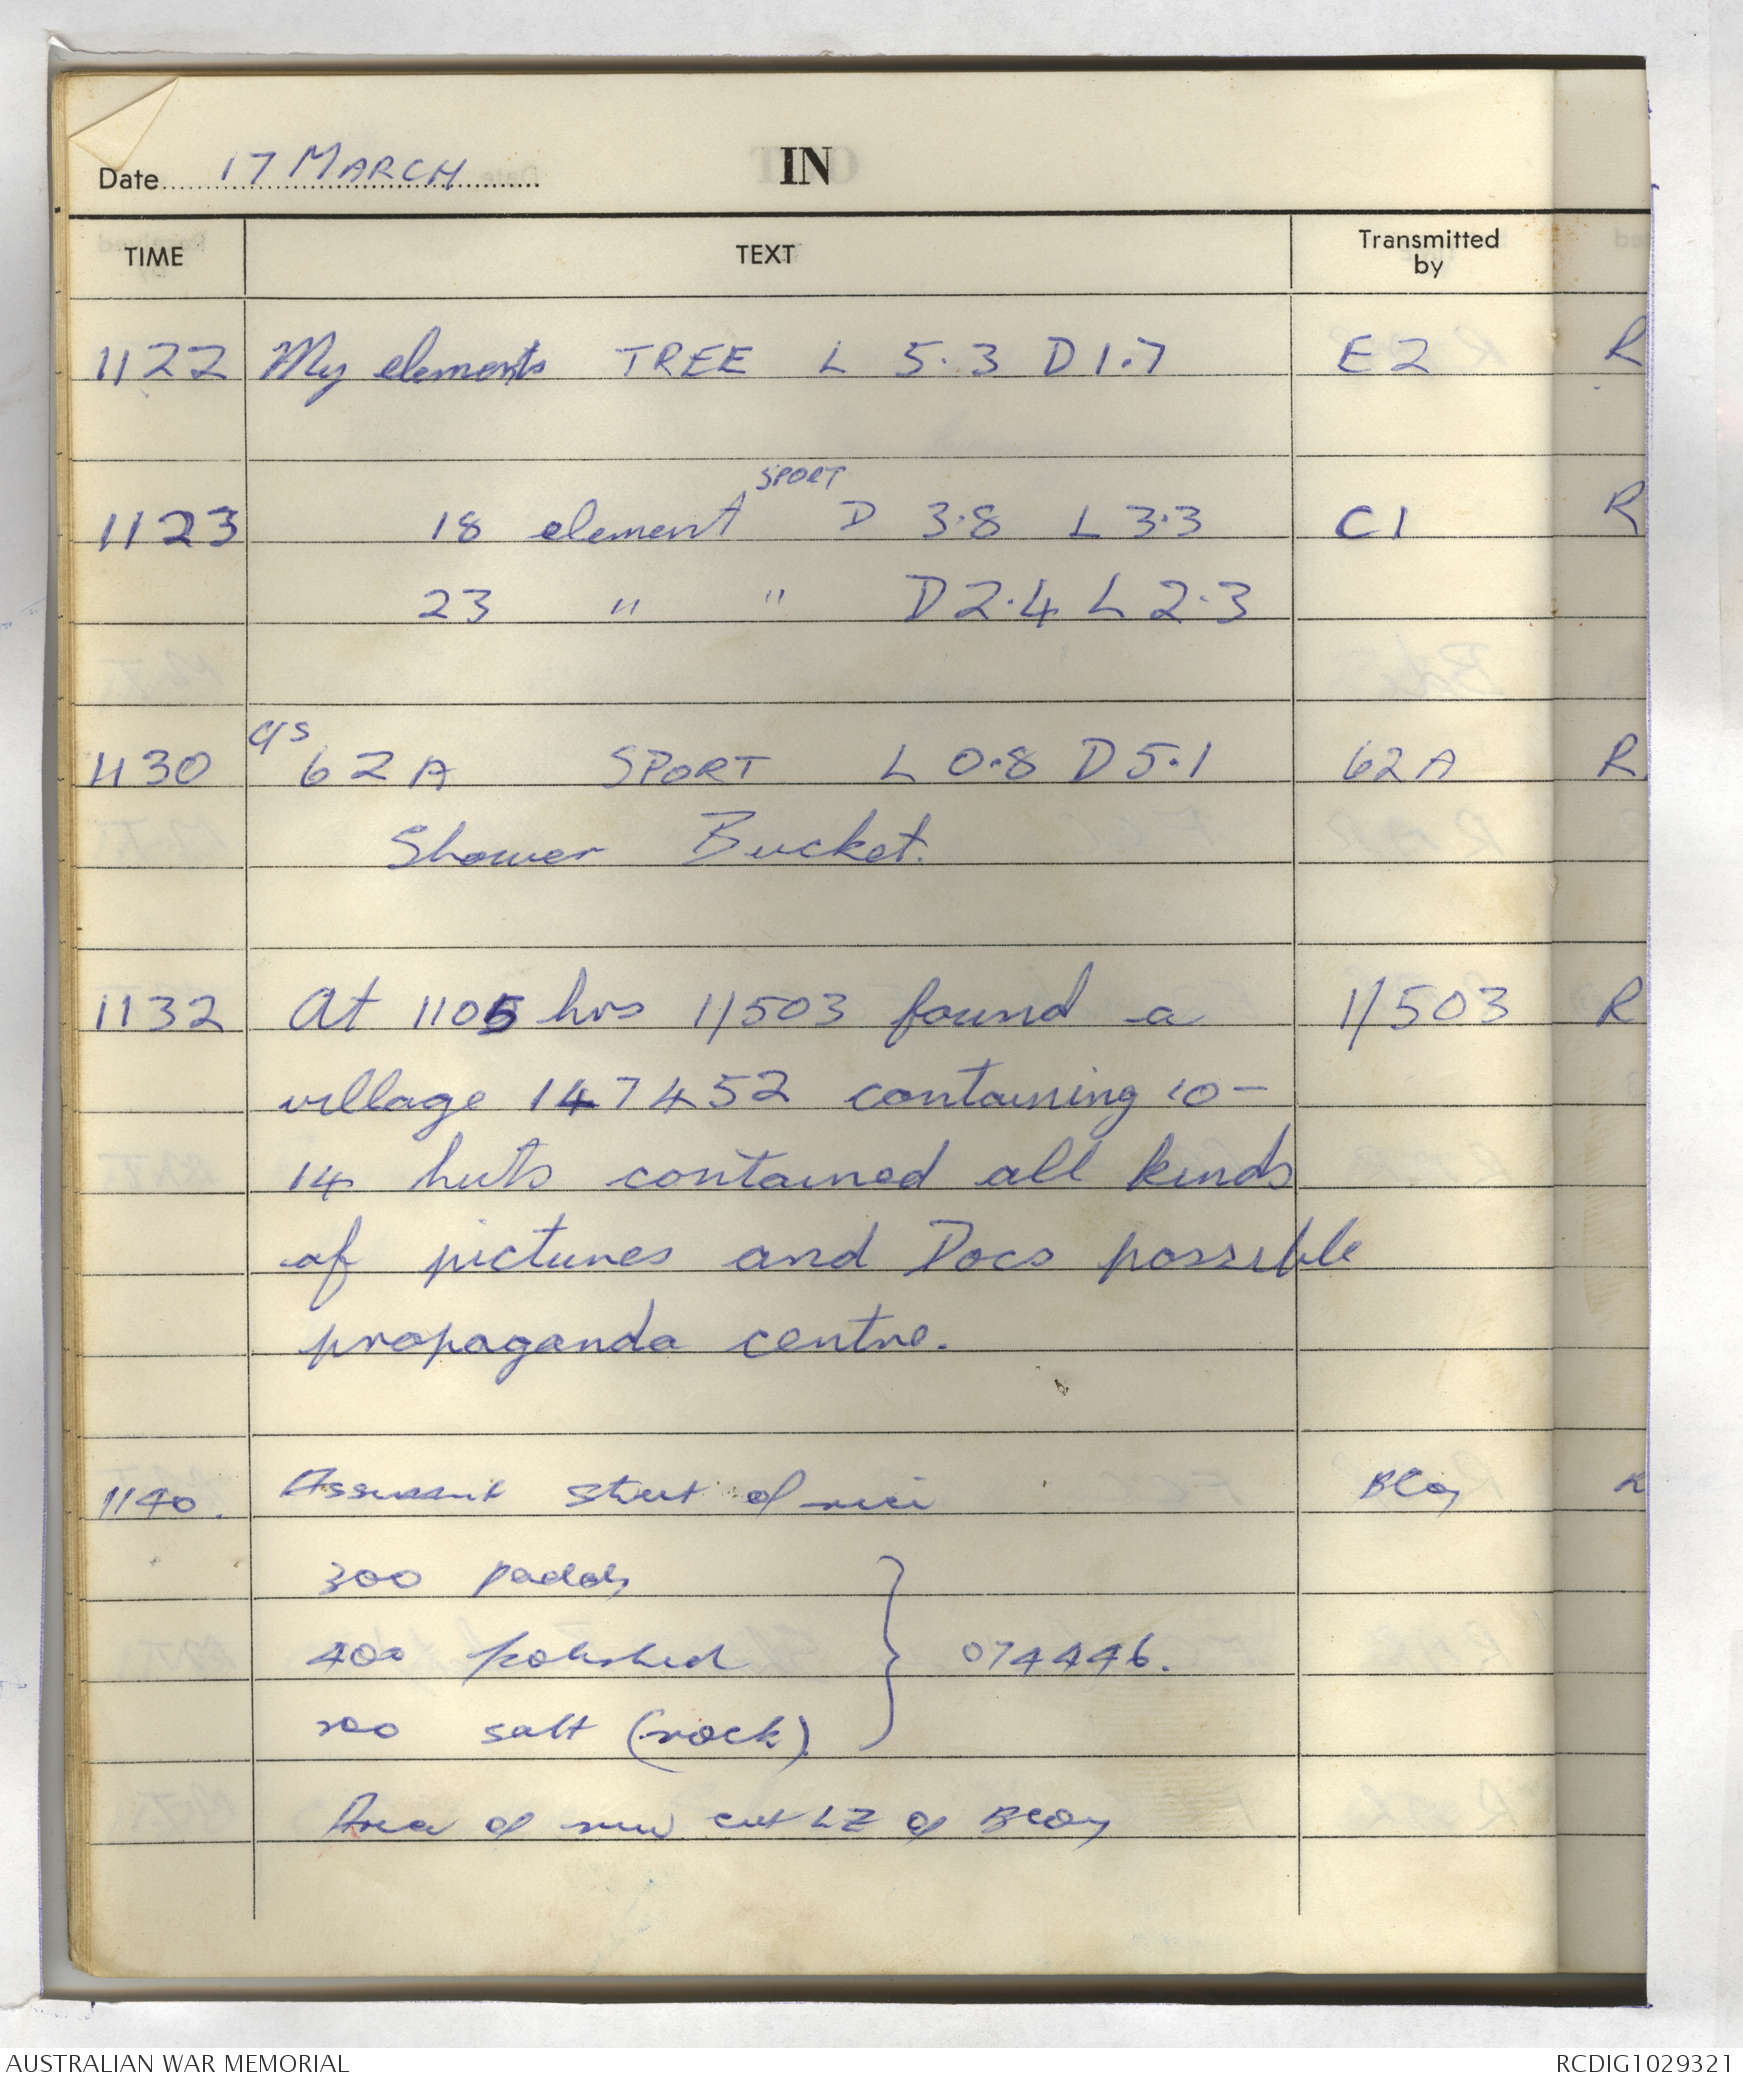 Date 17 MARCH IN
TIME TEXT Transmitted by
1122 My elements TREE L 5.3 D 1.7 E2 R
SPORT
1123 18 element D 3.8 L 3.3 C1 R
23 " " D 2.4 L 2.3
1130 C/S 62A SPORT L 0.8 D 5.1 62A R
Shower Bucket.
1132 At 1105 hrs 11503 found a 1/503 R
village 147452 containing 10-
14 huts contained all kinds
of pictures and Docs possible
propaganda centre.
1140. street of rice BCoy R
300 paddy
400 polished 074446.
salt (rock)
Area of new cut LZ of BCoy
AUSTRALIAN WAR MEMORIAL RCDIG1029321